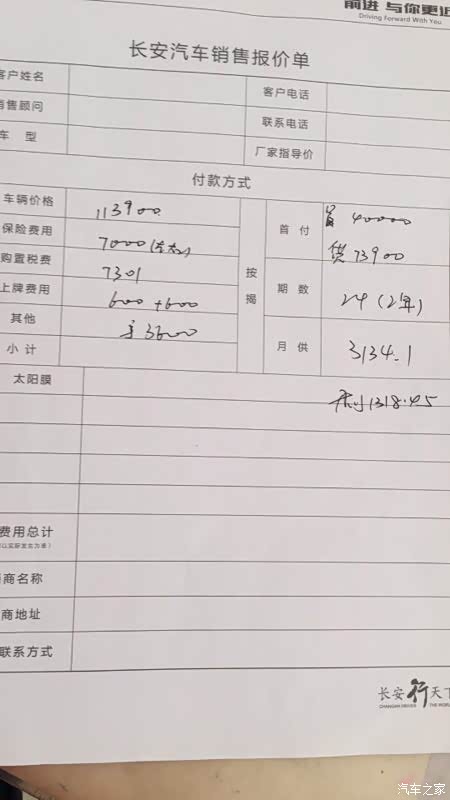 前进 与你更近
Driving Forward With You
长安汽车销售报价单
客户姓名 客户电话
销售顾问 联系电话
车 型 厂家指导价
付款方式
车辆价格 113900 首付 首 40000
保险费用 7000 贷 73900
购置税费 7301 按揭 期数 24 (2年)
上牌费用 600 + 600
其他 3600 月供 3134.1
小计
太阳膜 1318.45
费用总计
商名称
商地址
联系方式
长安行天下
CHANGAN DRIVES THE WORLD
汽车之家